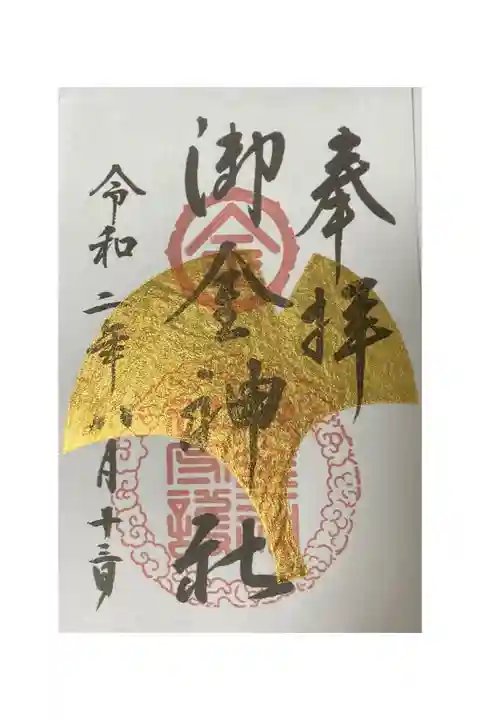 奉拝
御金神社
令和二年八月十三日